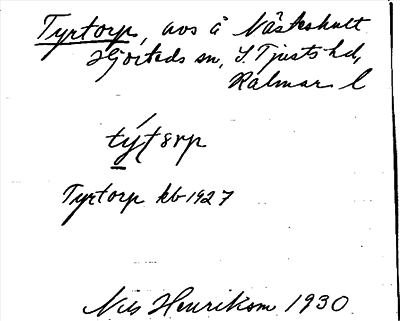 Tyrtorp, avs å Näskshult
Hjorteds sn, S. Tjusts hd,
Kalmar l
týtorp
Tyrtorp kb 1927
Nils Henrikson 1930